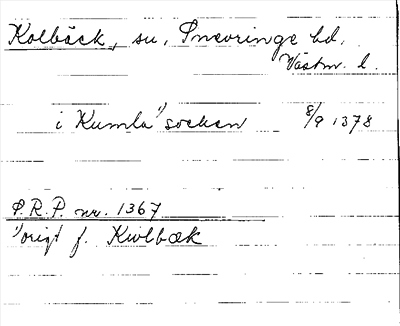 Kolbäck, sn, Snevringe hd,
Västm. l.
i Kumla¹⁾ socken 8/9 1378
P.R.P. nr. 1367
¹⁾origt f. Kwlbæk